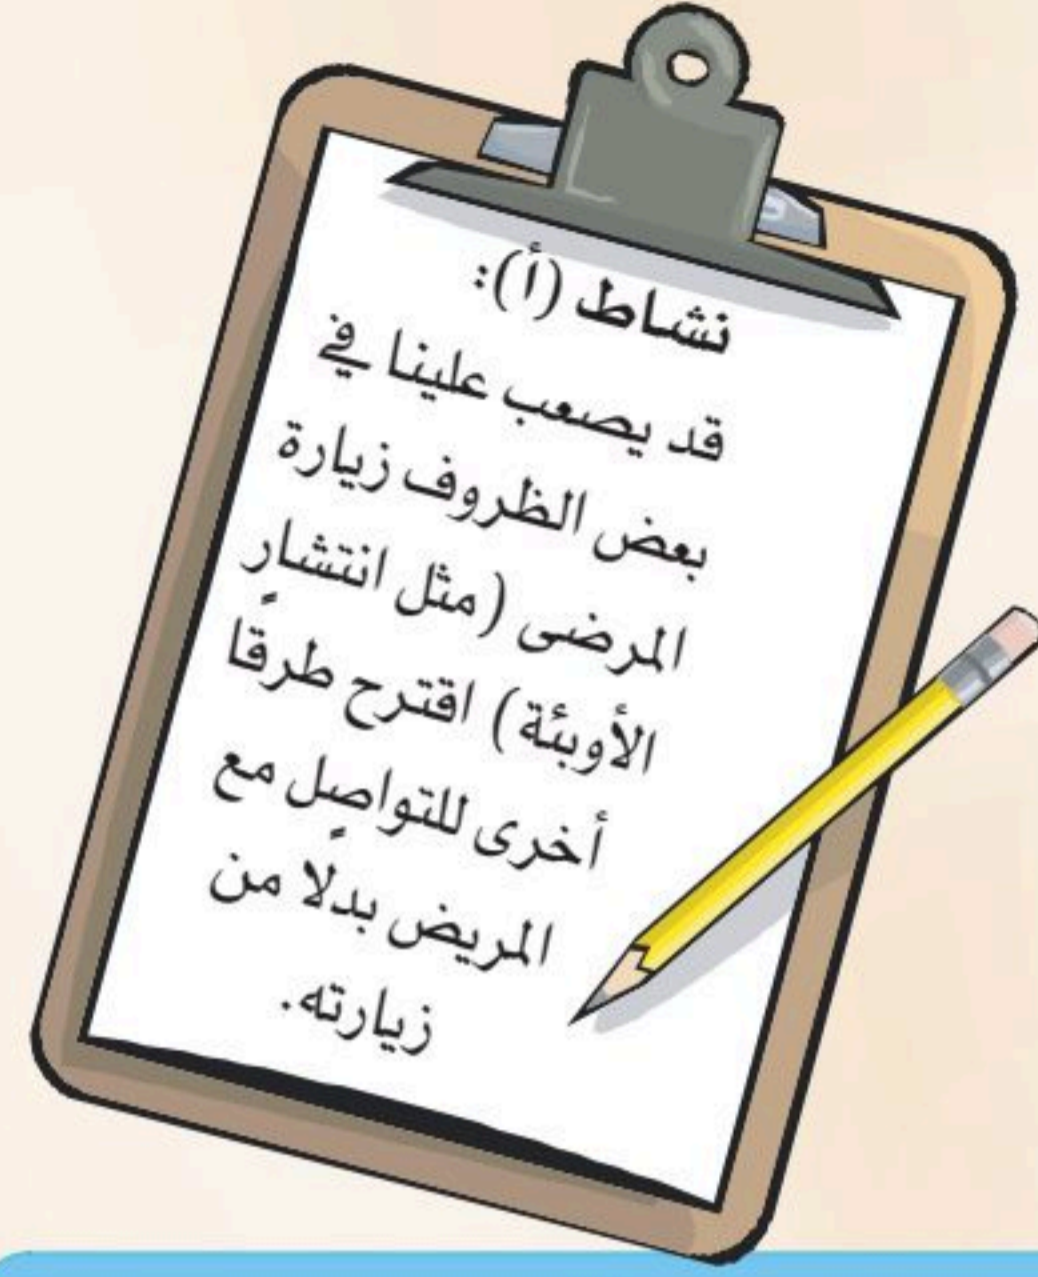 نشاط (أ):
قد يصعب علينا في
بعض الظروف زيارة
المرضى (مثل انتشارِ
الأوبئة) اقترح طرقًا
أخرى للتواصِل مع
المريض بدلًا من
زيارته.